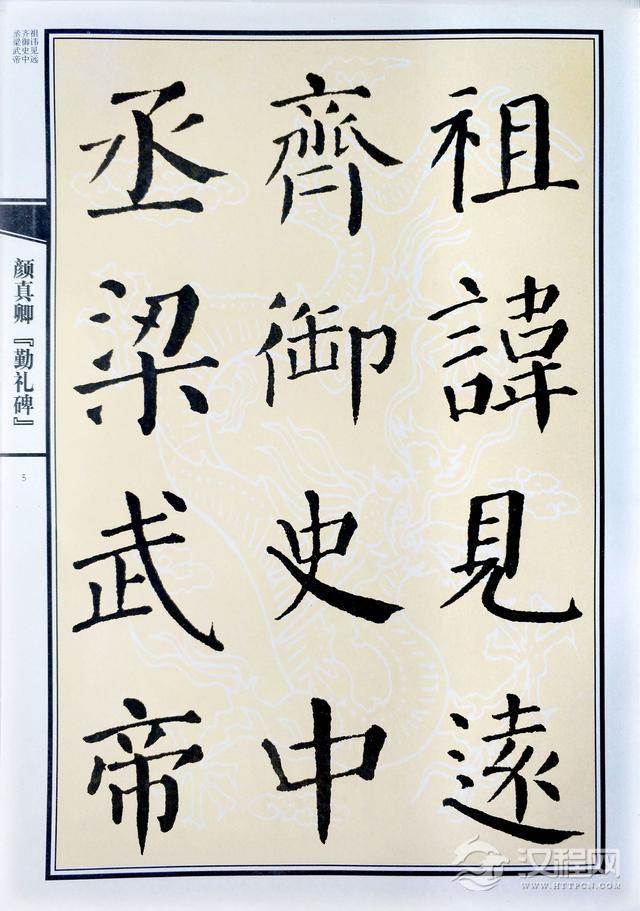 祖諱見遠
齊御史中
丞梁武帝
祖讳见远
齐御史中
丞梁武帝
颜真卿『勤礼碑』
5
汉程网
WWW.HTTPCN.COM